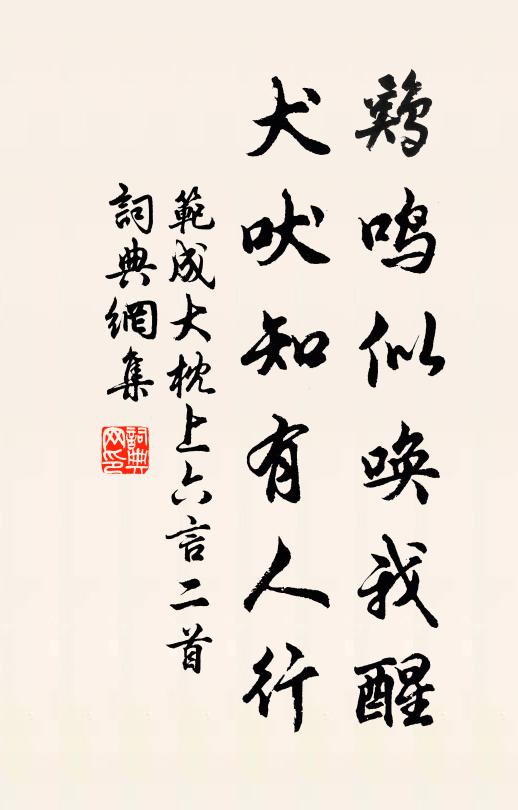 鷄鳴似喚我醒
犬吠知有人行
範成大枕上六言二首
詞典網集
詞典网印